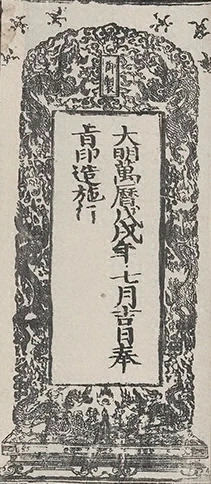 御製
大明萬曆戊戌年七月吉日奉
旨印造施行